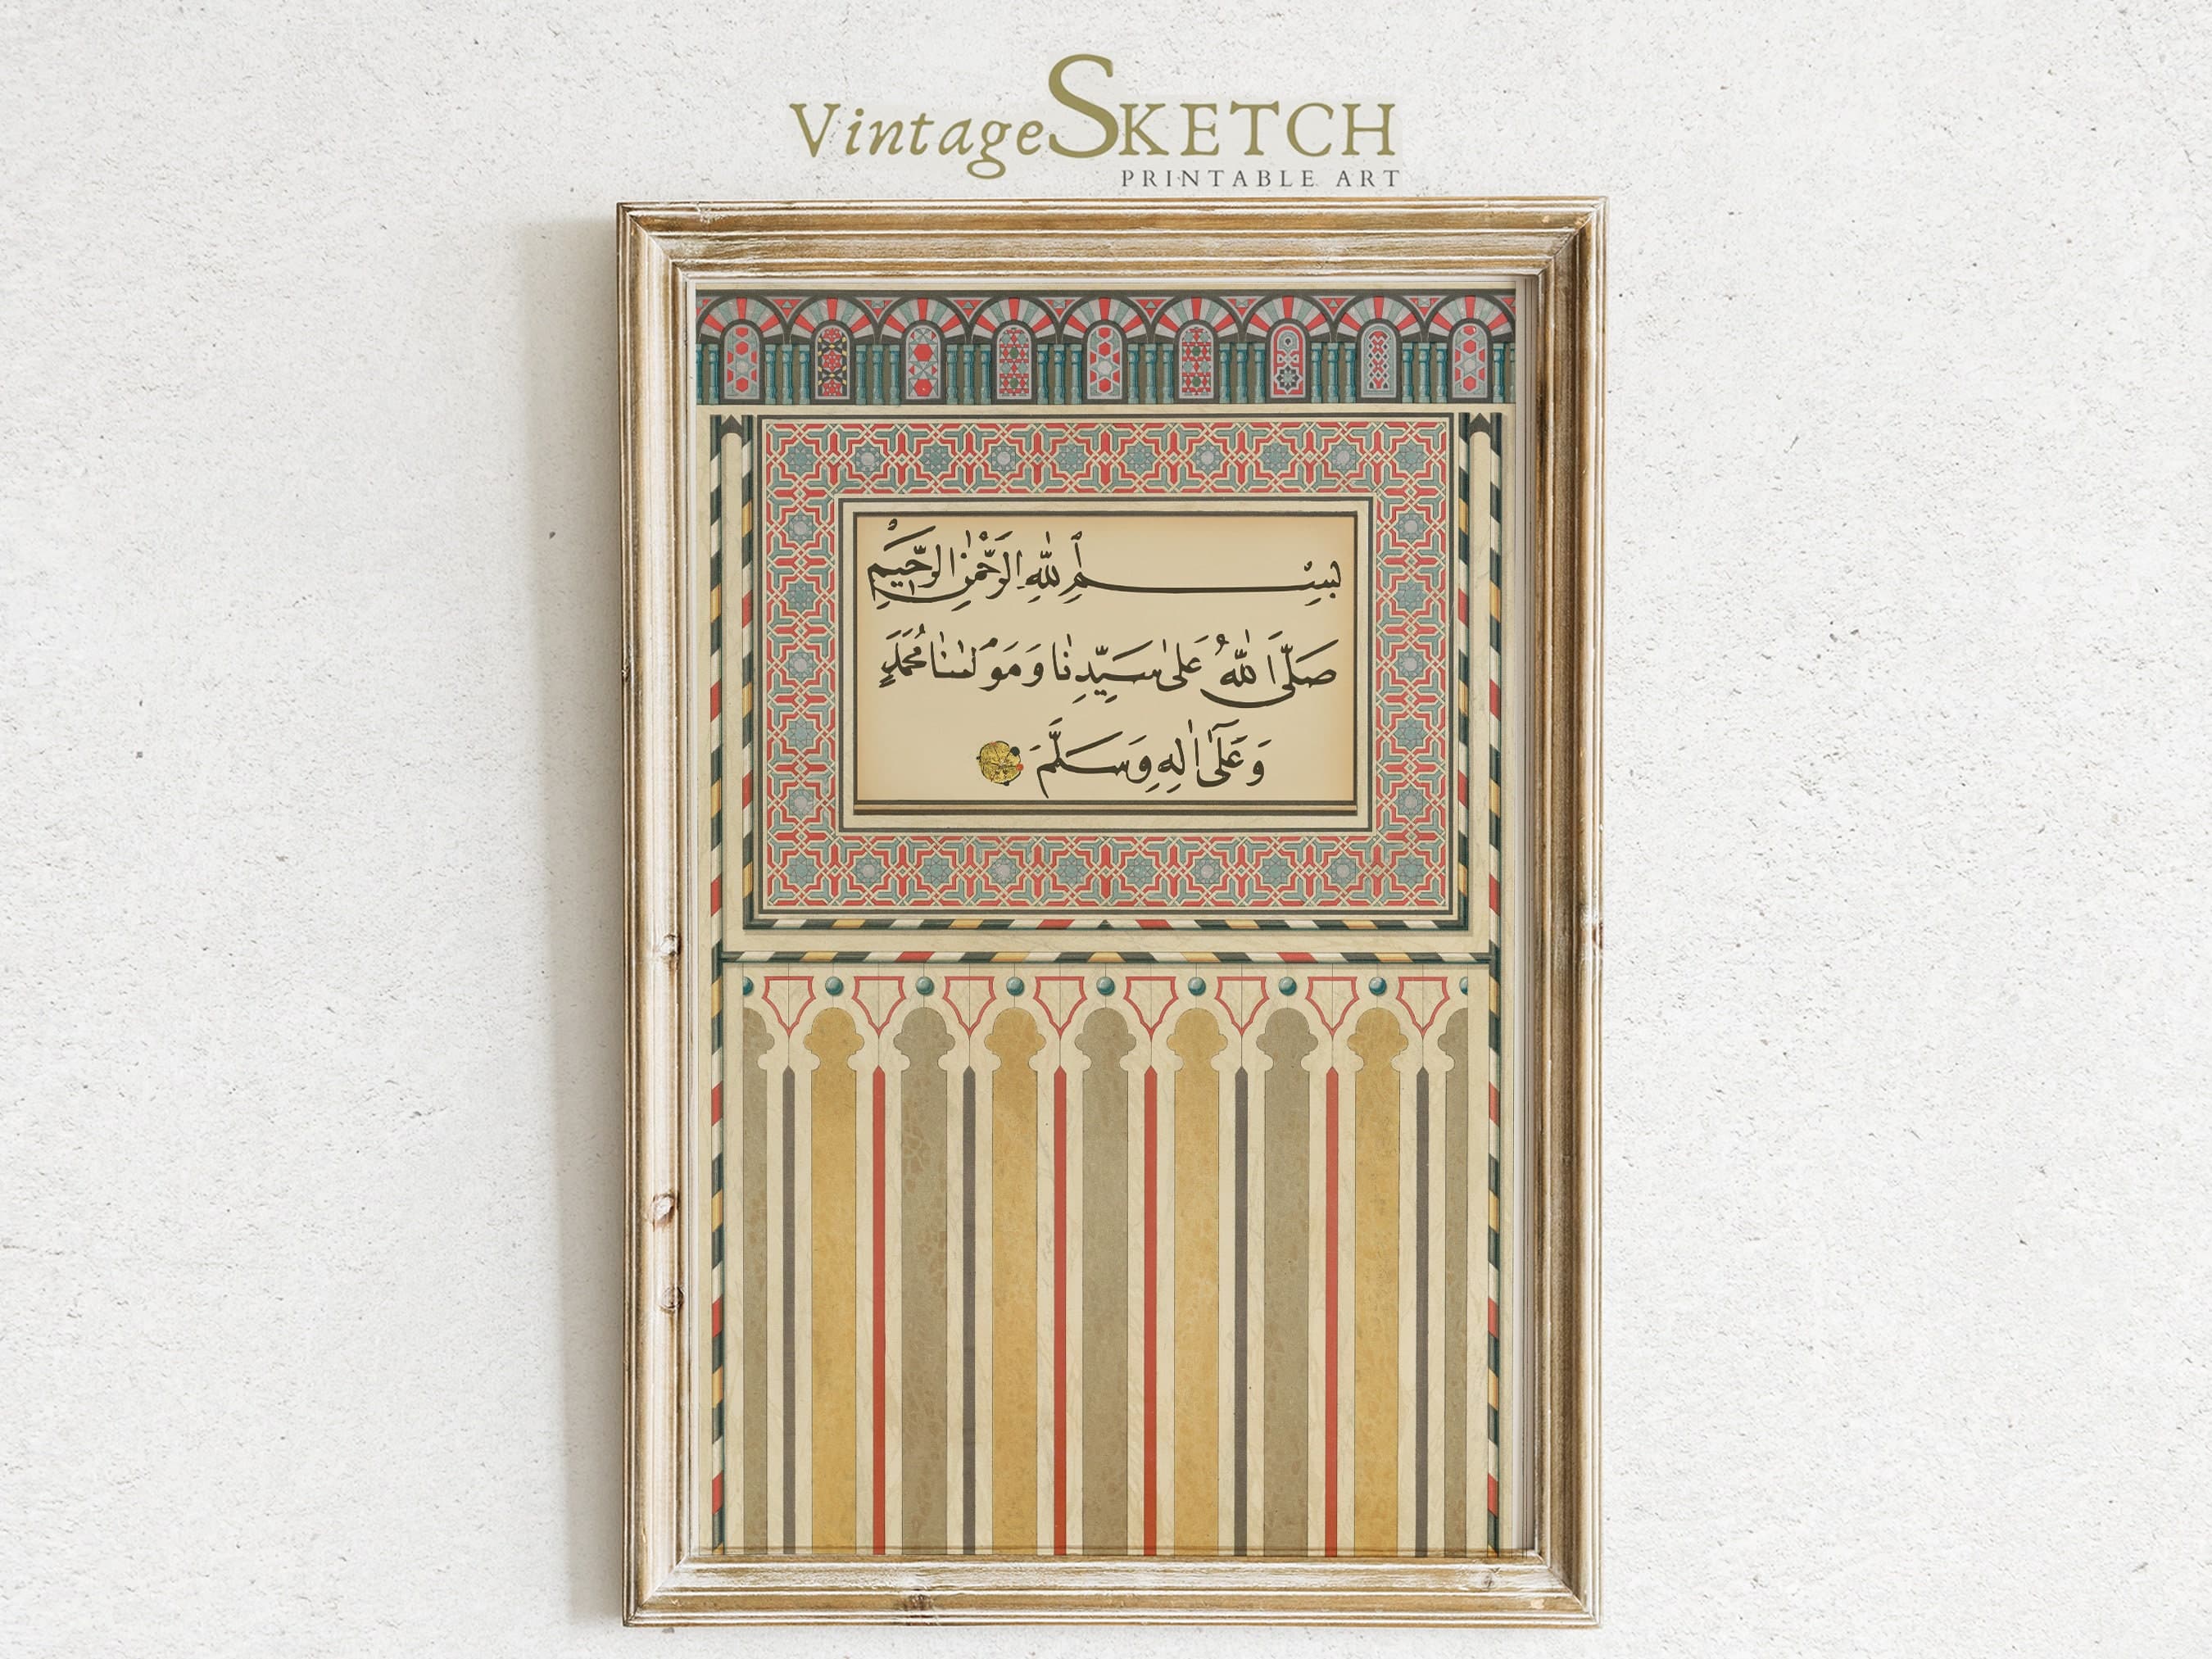 VintageSKETCH
PRINTABLE ART
بِسْمِ ٱللهِ الرَّحْمٰنِ الرَّحِيْمِ
صَلَّى اللهُ عَلٰى سَيِّدِنَا وَمَوْلٰىنَا مُحَمَّدٍ
وَعَلٰٓى اٰلِهٖ وَسَلَّمَ